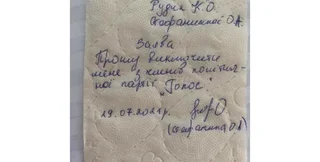 Рудик К.О.
Стефанишиної О.А.
Заява
Прошу виключити
мене з членів політич-
ної партії "Голос"
29.07.2021р.
(Стефанишина О.А)